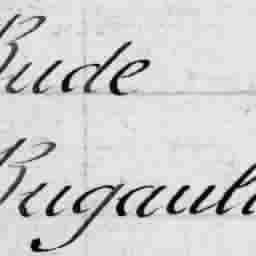 Bude
Bugault